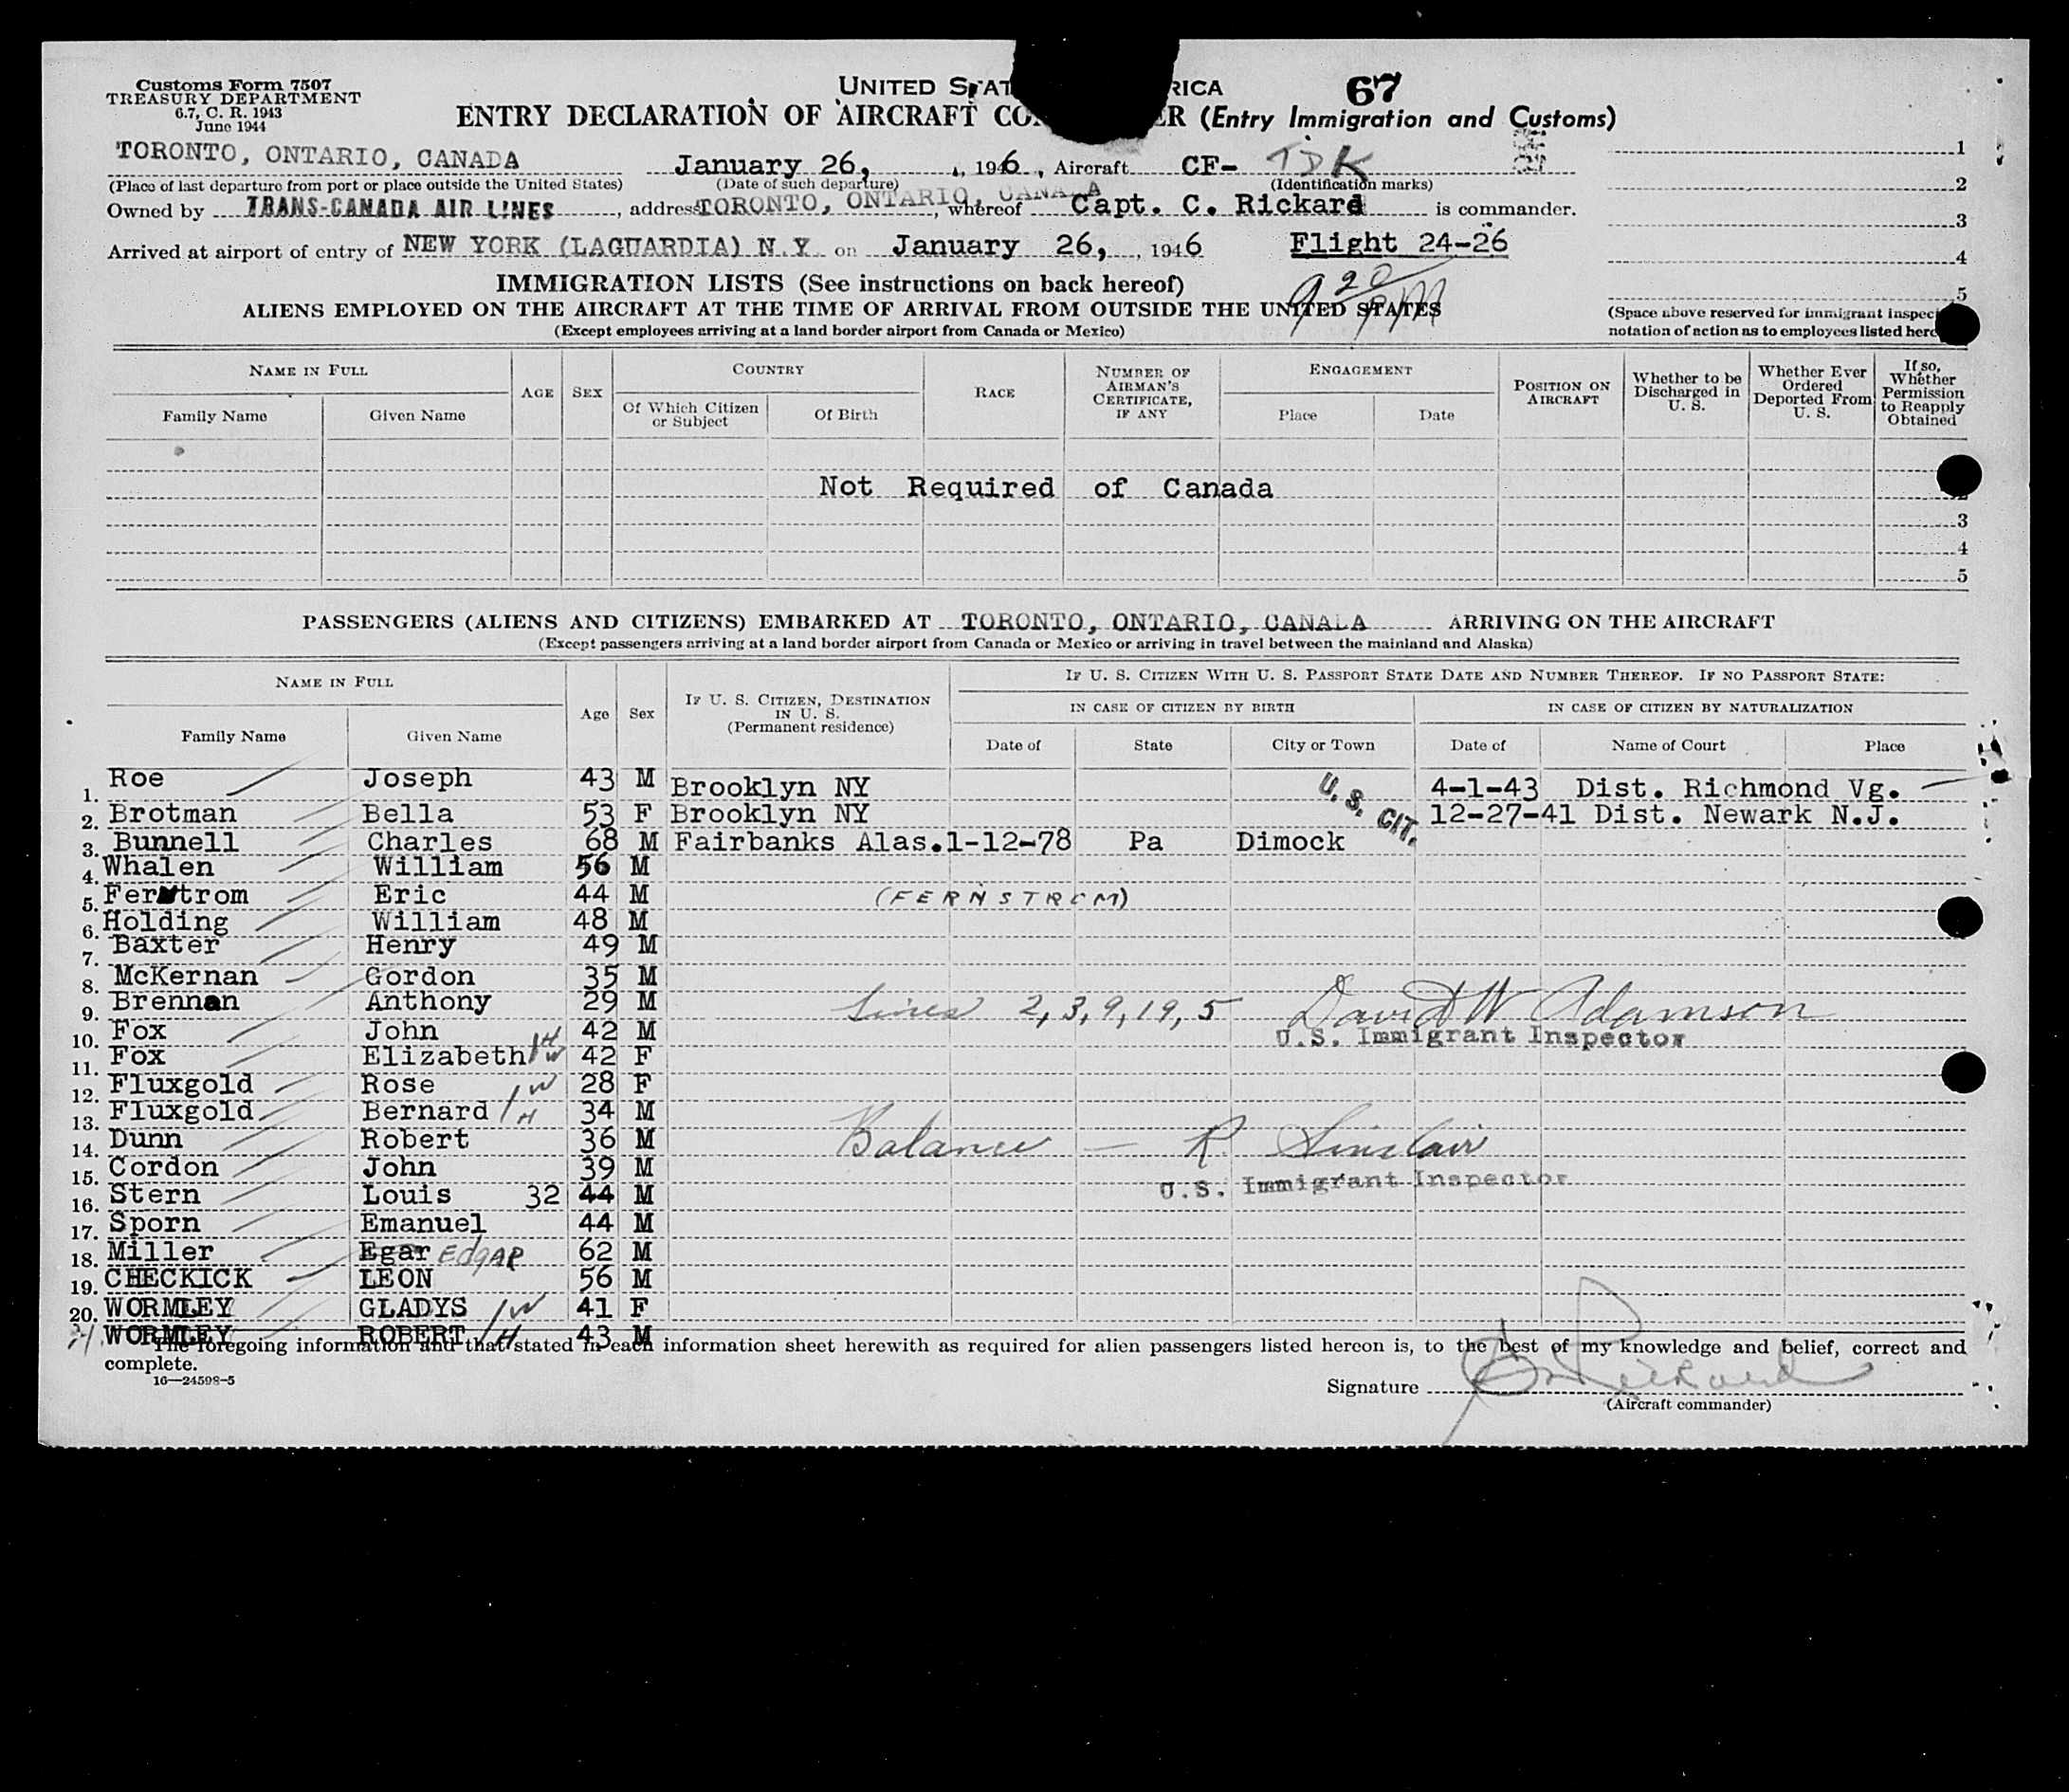 Customs Form 7507
TREASURY DEPARTMENT
6.7, C. R. 1943
June 1944
UNITED STAT RICA
67
ENTRY DECLARATION OF AIRCRAFT CO ER (Entry Immigration and Customs)
TORONTO, ONTARIO, CANADA January 26, , 1946 , Aircraft CF- TDK 1
(Place of last departure from port or place outside the United States) (Date of such departure) (Identification marks) 2
Owned by TRANS-CANADA AIR LINES , address TORONTO, ONTARIO, CANADA , whereof Capt. C. Rickard is commander. 3
Arrived at airport of entry of NEW YORK (LAGUARDIA) N Y on January 26, , 1946 Flight 24-26 4
IMMIGRATION LISTS (See instructions on back hereof) 9 20 PM 5
ALIENS EMPLOYED ON THE AIRCRAFT AT THE TIME OF ARRIVAL FROM OUTSIDE THE UNITED STATES
(Space above reserved for immigrant inspec
(Except employees arriving at a land border airport from Canada or Mexico) notation of action as to employees listed here
NAME IN FULL
Family Name Given Name
AGE SEX
COUNTRY
Of Which Citizen or Subject Of Birth
RACE
NUMBER OF AIRMAN'S CERTIFICATE, IF ANY
ENGAGEMENT
Place Date
POSITION ON AIRCRAFT
Whether to be Discharged in U. S.
Whether Ever Ordered Deported From U. S.
If so, Whether Permission to Reapply Obtained
Not Required of Canada 2
3
4
5
PASSENGERS (ALIENS AND CITIZENS) EMBARKED AT TORONTO, ONTARIO, CANADA ARRIVING ON THE AIRCRAFT
(Except passengers arriving at a land border airport from Canada or Mexico or arriving in travel between the mainland and Alaska)
NAME IN FULL
Family Name Given Name
Age Sex
IF U. S. CITIZEN, DESTINATION IN U. S.
(Permanent residence)
IF U. S. CITIZEN WITH U. S. PASSPORT STATE DATE AND NUMBER THEREOF. IF NO PASSPORT STATE:
IN CASE OF CITIZEN BY BIRTH IN CASE OF CITIZEN BY NATURALIZATION
Date of State City or Town Date of Name of Court Place
1. Roe Joseph 43 M Brooklyn NY 4-1-43 Dist. Richmond Vg.
U. S. CIT.
2. Brotman Bella 53 F Brooklyn NY 12-27-41 Dist. Newark N.J.
3. Bunnell Charles 68 M Fairbanks Alas. 1-12-78 Pa Dimock
4. Whalen William 56 M
5. Fernstrom Eric 44 M (FERNSTROM)
6. Holding William 48 M
7. Baxter Henry 49 M
8. McKernan Gordon 35 M
9. Brennan Anthony 29 M Lines 2, 3, 9, 19, 5 David W Adamson
10. Fox John 42 M U.S. Immigrant Inspector
11. Fox Elizabeth H/W 42 F
12. Fluxgold Rose /W 28 F
13. Fluxgold Bernard /H 34 M
14. Dunn Robert 36 M Balance - R. Sinclair
15. Cordon John 39 M
16. Stern Louis 32 44 M U.S. Immigrant Inspector
17. Sporn Emanuel 44 M
18. Miller Egar Edgar 62 M
19. CHECKICK LEON 56 M
20. WORMLEY GLADYS /W 41 F
21. WORMLEY ROBERT /H 43 M
The foregoing information and that stated in each information sheet herewith as required for alien passengers listed hereon is, to the best of my knowledge and belief, correct and
complete.
16—24598-5
Signature Rickard
(Aircraft commander)